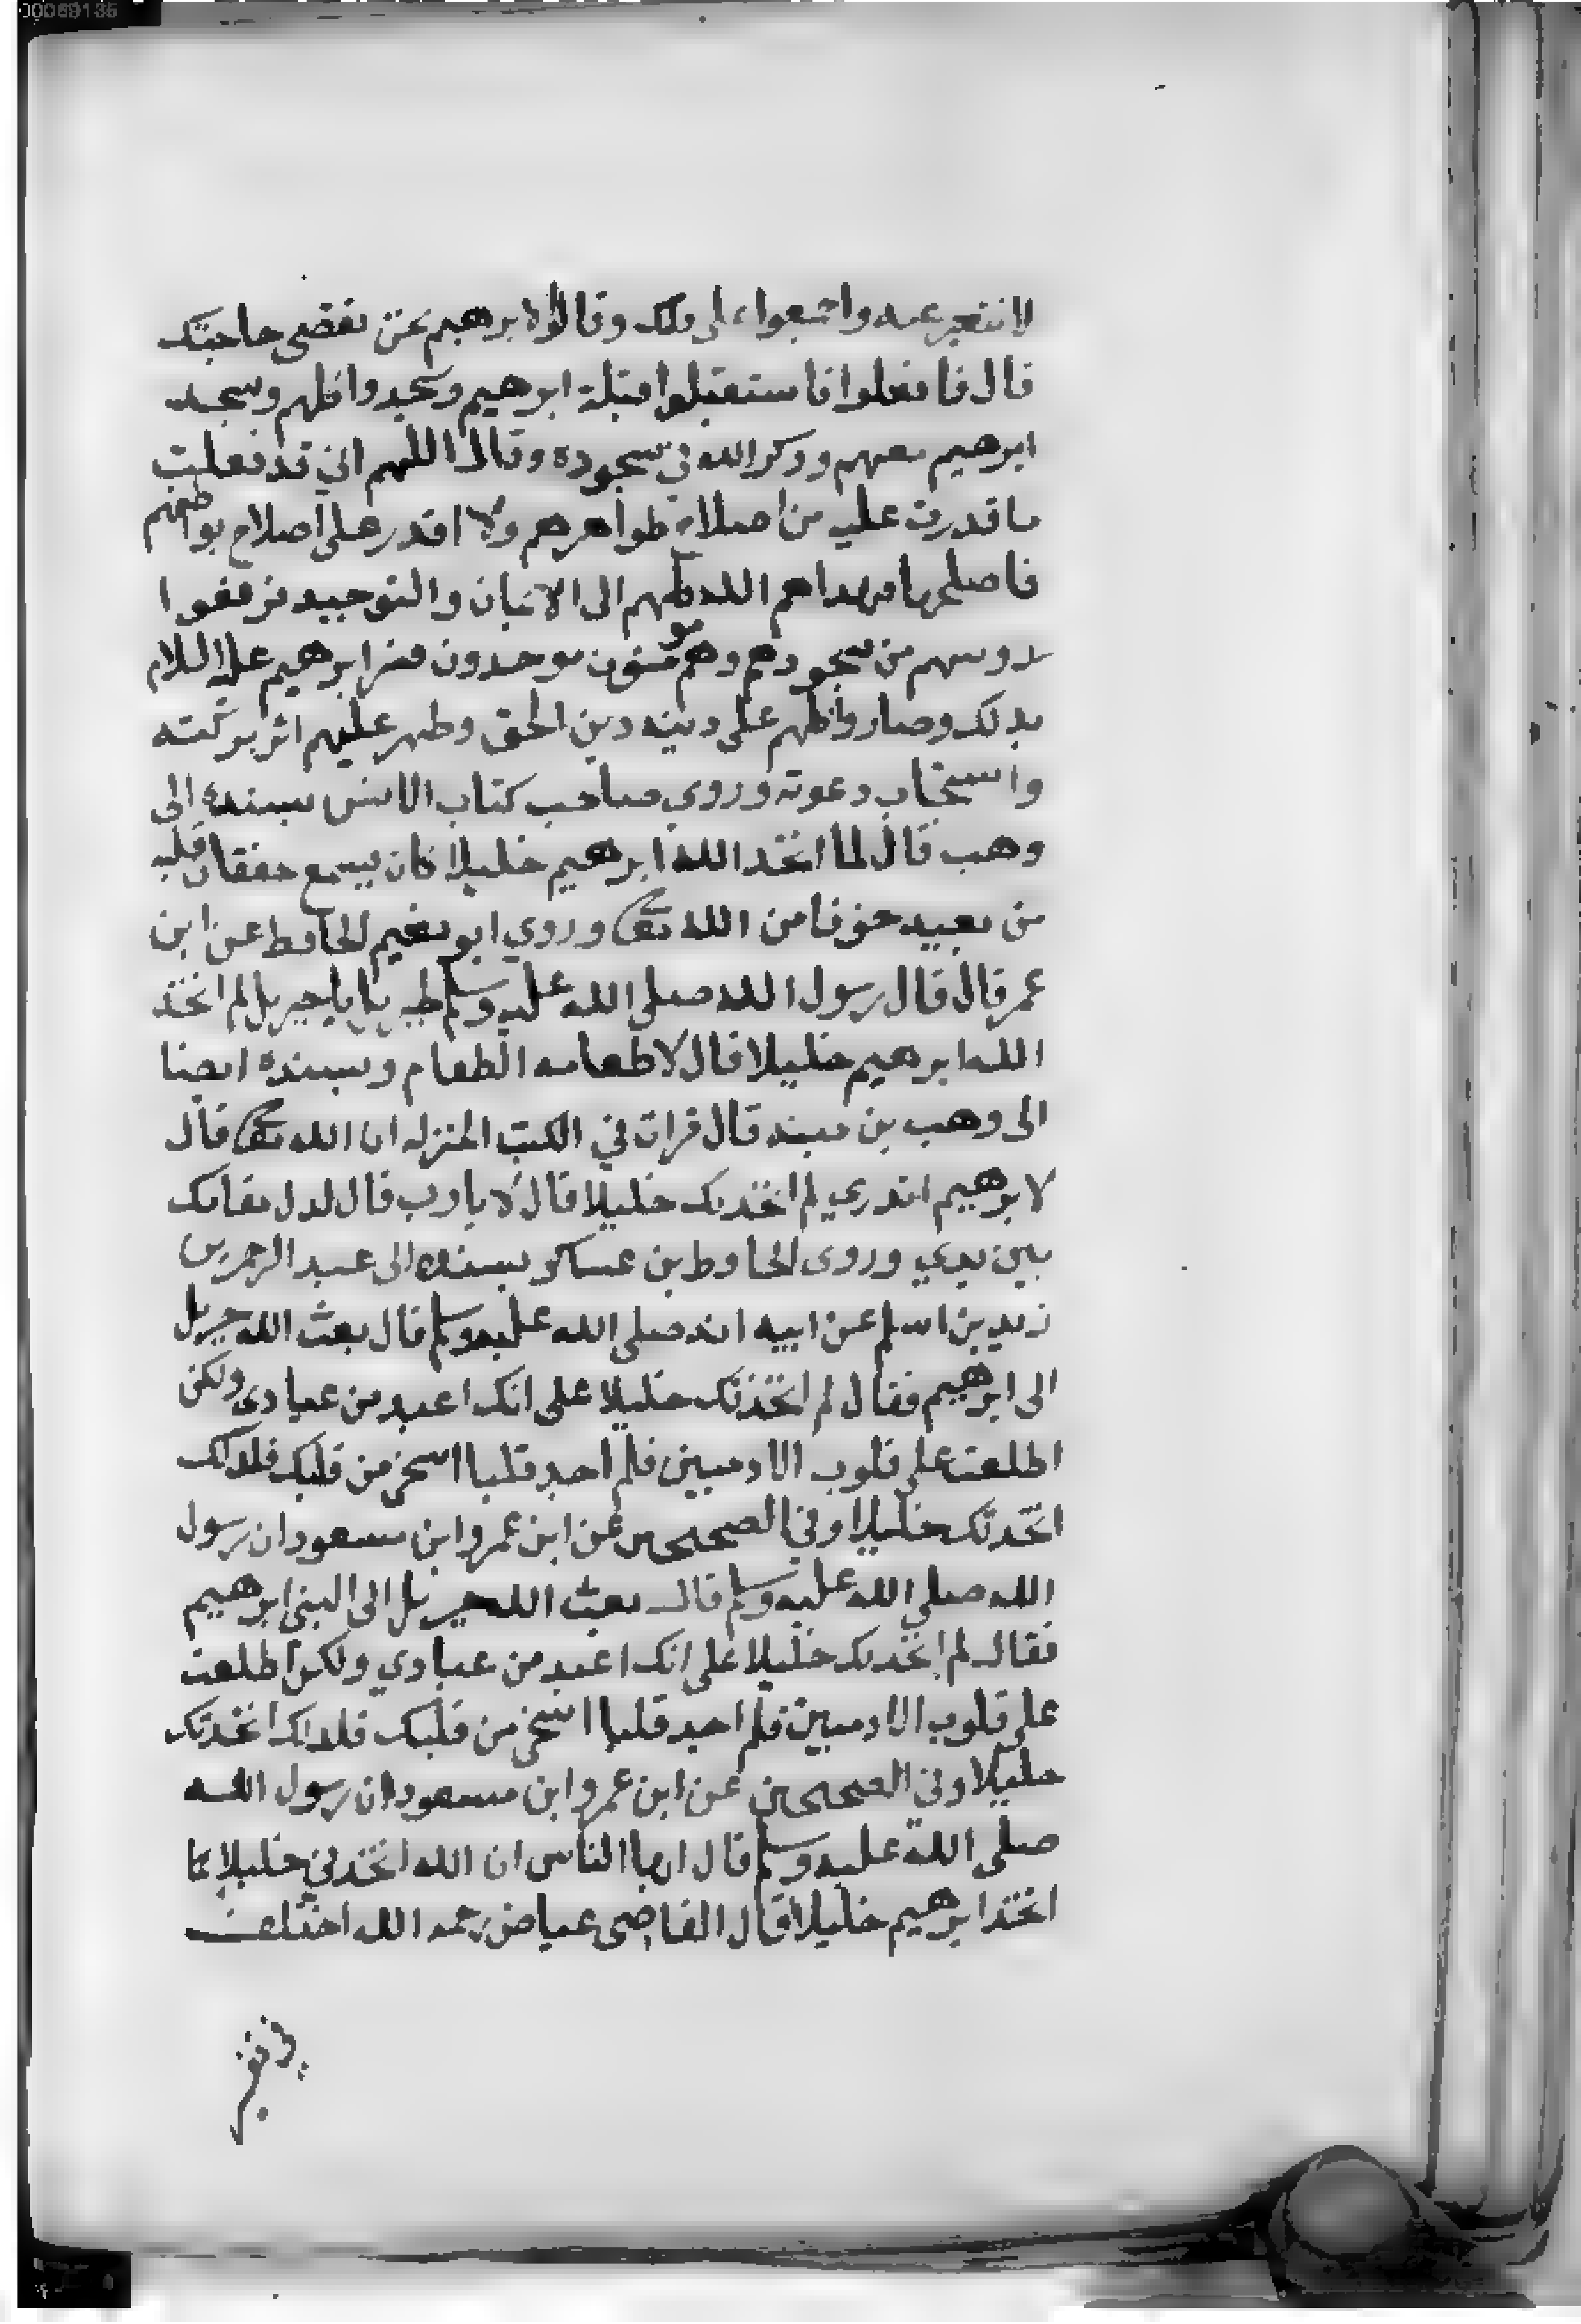 00069135
لا نتغير عنه واجمعوا على ذلك وقالوا لابرهيم نحن نقضي حاجتك
قال فافعلوا فاستقبلوا قبلة ابرهيم وسجدوا كلهم وسجد
ابرهيم معهم وذكر الله في سجوده وقال اللهم اني قد فعلت
ما قدرت عليه من اصلاح ظواهرهم ولا اقدر على اصلاح بواطنهم
فاصلحها فهداهم الله كلهم الى الايمان والتوحيد فرفعوا
روسهم من سجودهم وهم مومنون موحدون فسر ابرهيم عليه السلام
بذلك وصاروا كلهم على دينه دين الحق وظهر عليهم اثر بركته
واستجاب دعوته وروي صاحب كتاب الانس بسنده الى
وهب قال لما اتخذ الله ابرهيم خليلا كان يسمع خفقان قلبه
من بعيد خوفا من الله تعالى وروي ابو نعيم الحافظ عن ابن
عمر قال قال رسول الله صلى الله عليه وسلم يا جبريل لم اتخذ
الله ابرهيم خليلا قال لاطعامه الطعام وبسنده ايضا
الى وهب بن منبه قال قرات في الكتب المنزله ان الله تعالى قال
لابرهيم اتدري لم اتخذتك خليلا قال لا يا رب قال لذل مقامك
بين يدي وروى الحافظ بن عساكر بسنده الى عبد الرحمن بن
زيد بن اسلم عن ابيه انه صلى الله عليه وسلم قال بعث الله جبريل
الى ابرهيم فقال لم اتخذتك خليلا على انك اعبد من عبادي ولكن
اطلعت على قلوب الادميين فلم اجد قلبا اسخى من قلبك فلذلك
اتخذتك خليلا وفي الصحيحين عن ابن عمر وابن مسعود ان رسول
الله صلى الله عليه وسلم قال بعث الله جبريل الى النبي ابرهيم
فقال لم اتخذتك خليلا على انك اعبد من عبادي ولكن اطلعت
على قلوب الادميين فلم اجد قلبا اسخى من قلبك فلذلك اتخذتك
خليلا وفي الصحيحين عن ابن عمر وابن مسعود ان رسول الله
صلى الله عليه وسلم قال ايها الناس ان الله اتخذني خليلا كما
اتخذ ابرهيم خليلا قال القاضي عياض رحمه الله اختلف